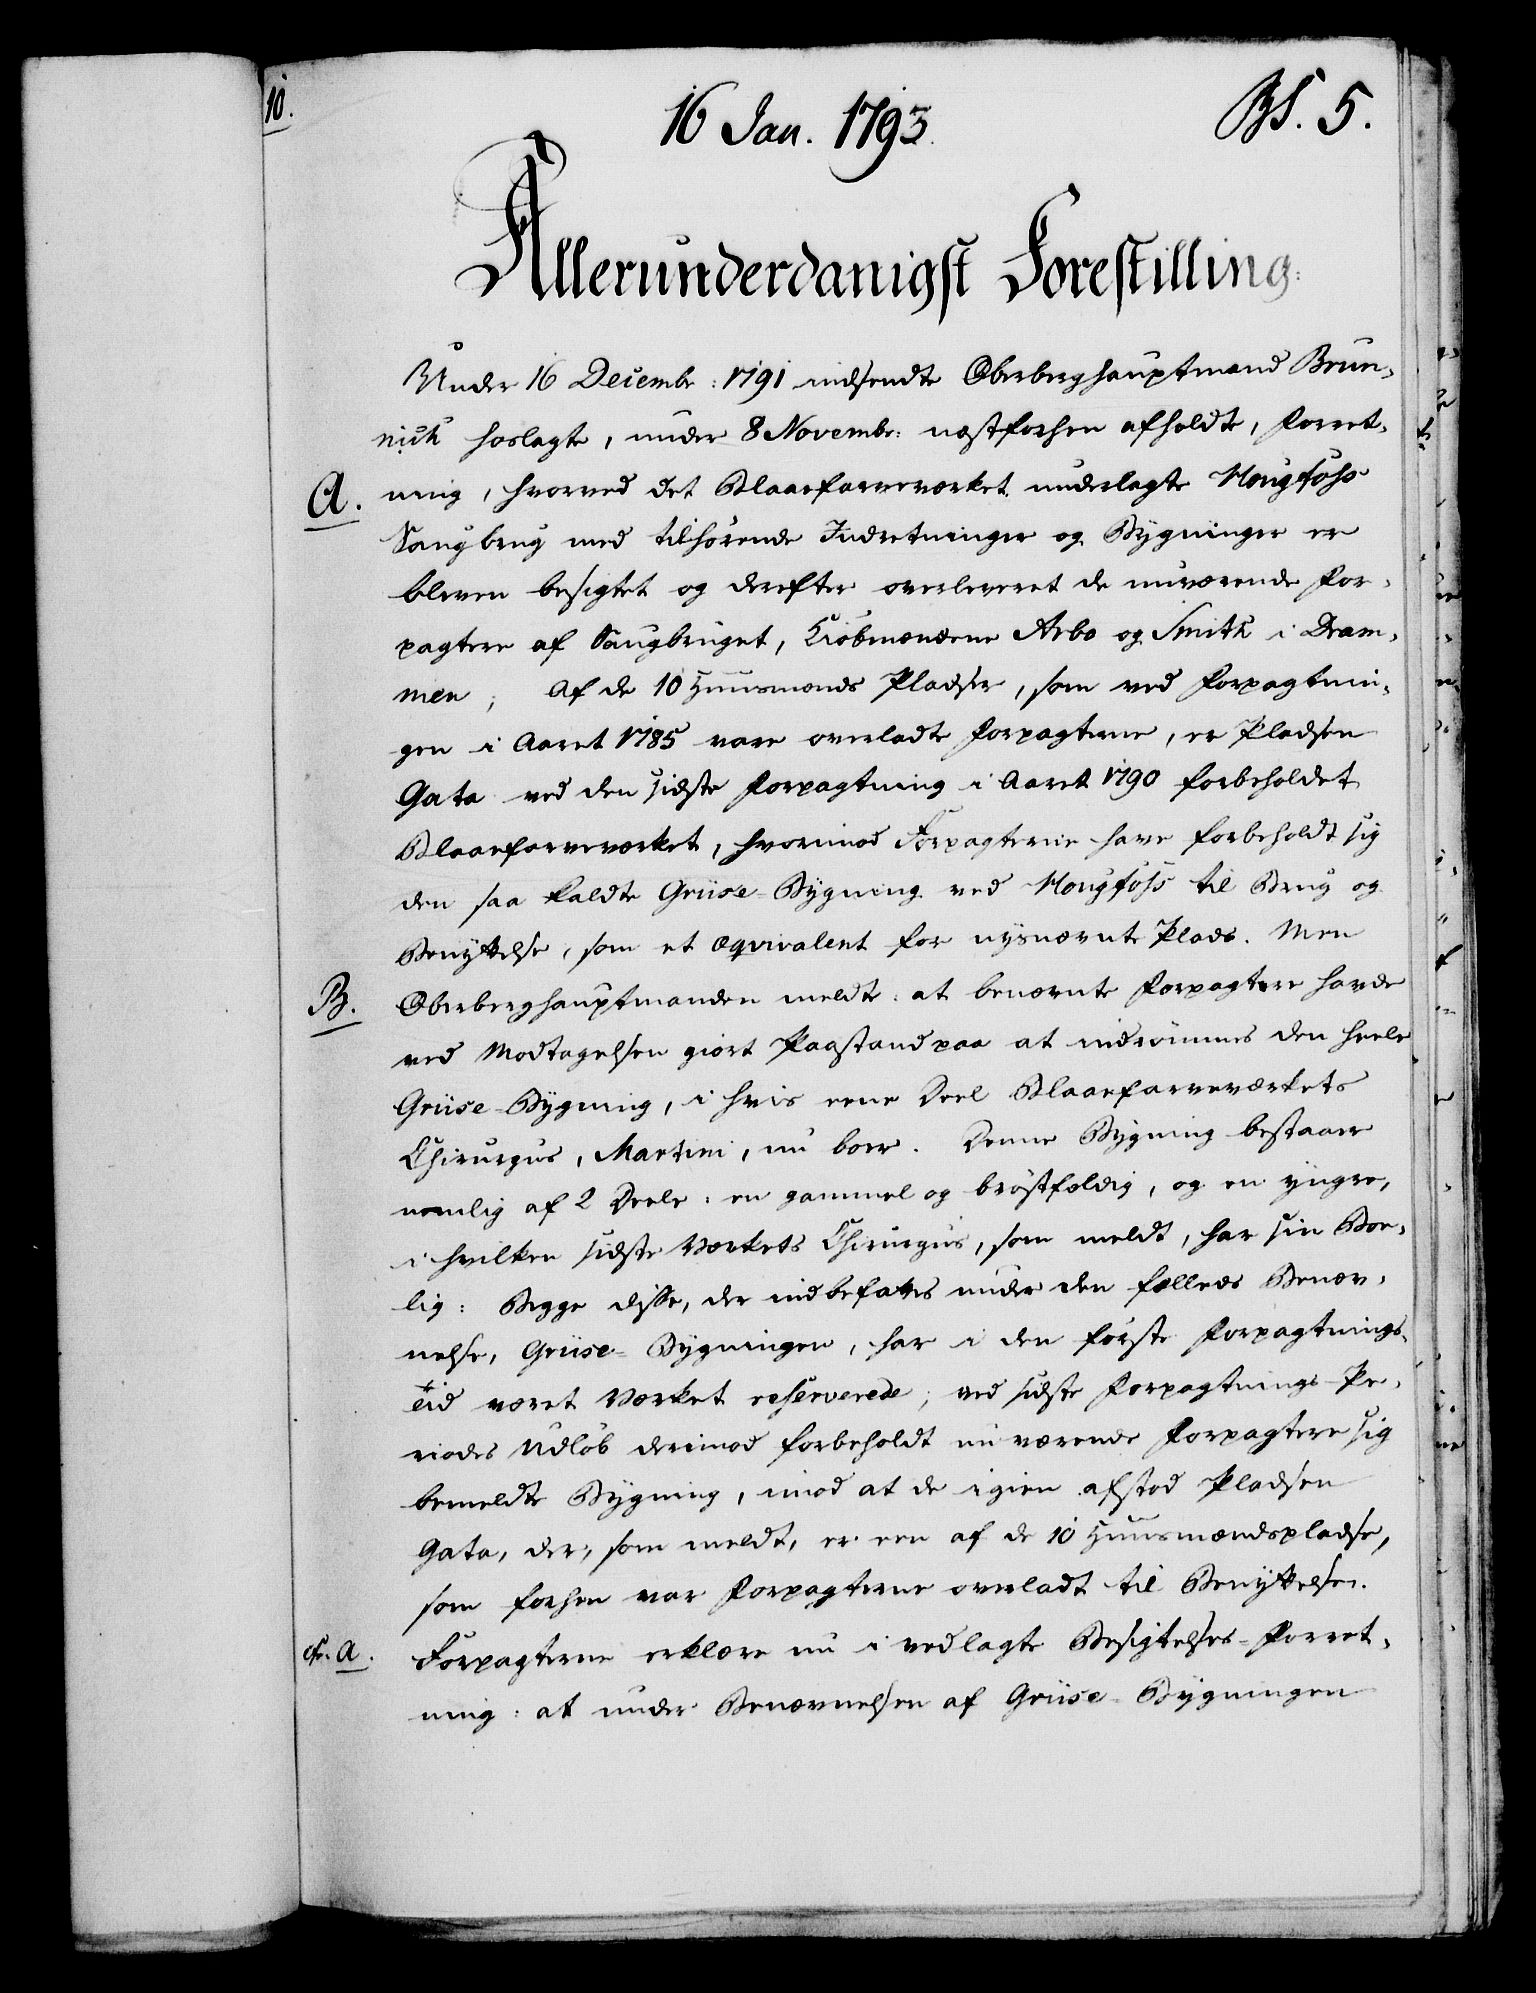 10.
16 Jan. 1793.
Bf. 5.
Allerunderdanigst Forestilling:
Under 16 Decembr: 1791 indsendte Oberberghauptmand Brün-
nich hoslagte, under 8 Novembr: næstforhen afholdte, Forret-
A.
ning, hvorved det Blaaefarveværket underlagte Hougfoss
Saugbrug med tilhørende Indretninger og Bygninger er
bleven besigtet og derefter overleveret de nuværende For-
pagtere af Saugbruget, Kiøbmændene Arbo og Smith i Dram-
men; Af de 10 Huusmænds Pladser, som ved Forpagtnin-
gen i Aaret 1785 vare overladte Forpagterne, er Pladsen
Gata ved den sidste Forpagtning i Aaret 1790 forbeholdet
Blaaefarveværket, hvorimod Forpagterne have forbeholdt sig
den saa kaldte Grüse-Bygning ved Hougfoss til Brug og
Benyttelse, som et æqvivalent for nysnævnte Plads. Men
B.
Oberberghauptmanden meldte: at benævnte Forpagtere havde
ved Modtagelsen giort Paastand paa at indrømmes den heele
Grüse-Bygning, i hvis eene Deel Blaaefarveværkets
Chirurgus, Martini, nu boer. Denne Bygning bestaaer
nemlig af 2 Deele: en gammel og brøstfældig, og en yngre,
i hvilken sidste Værkets Chirurgus, som meldt, har sin Boe-
lig: Begge disse, der indbefattes under den fælleds Benæv-
nelse, Grüse-Bygningen, har i den første Forpagtnings-
tiid været Værket reserverede; ved sidste Forpagtnings-Pe-
riodes Udløb derimod forbeholdt nuværende Forpagtere sig
bemeldte Bygning, imod at de igien afstod Pladsen
Gata, der, som meldt, er een af de 10 Huusmændspladse,
som forhen var Forpagterne overladt til Benyttelse.
cfr. A.
Forpagterne erklære nu i vedlagte Besigtelses-Forret-
ning: at under Benævnelsen af Grüse-Bygningen